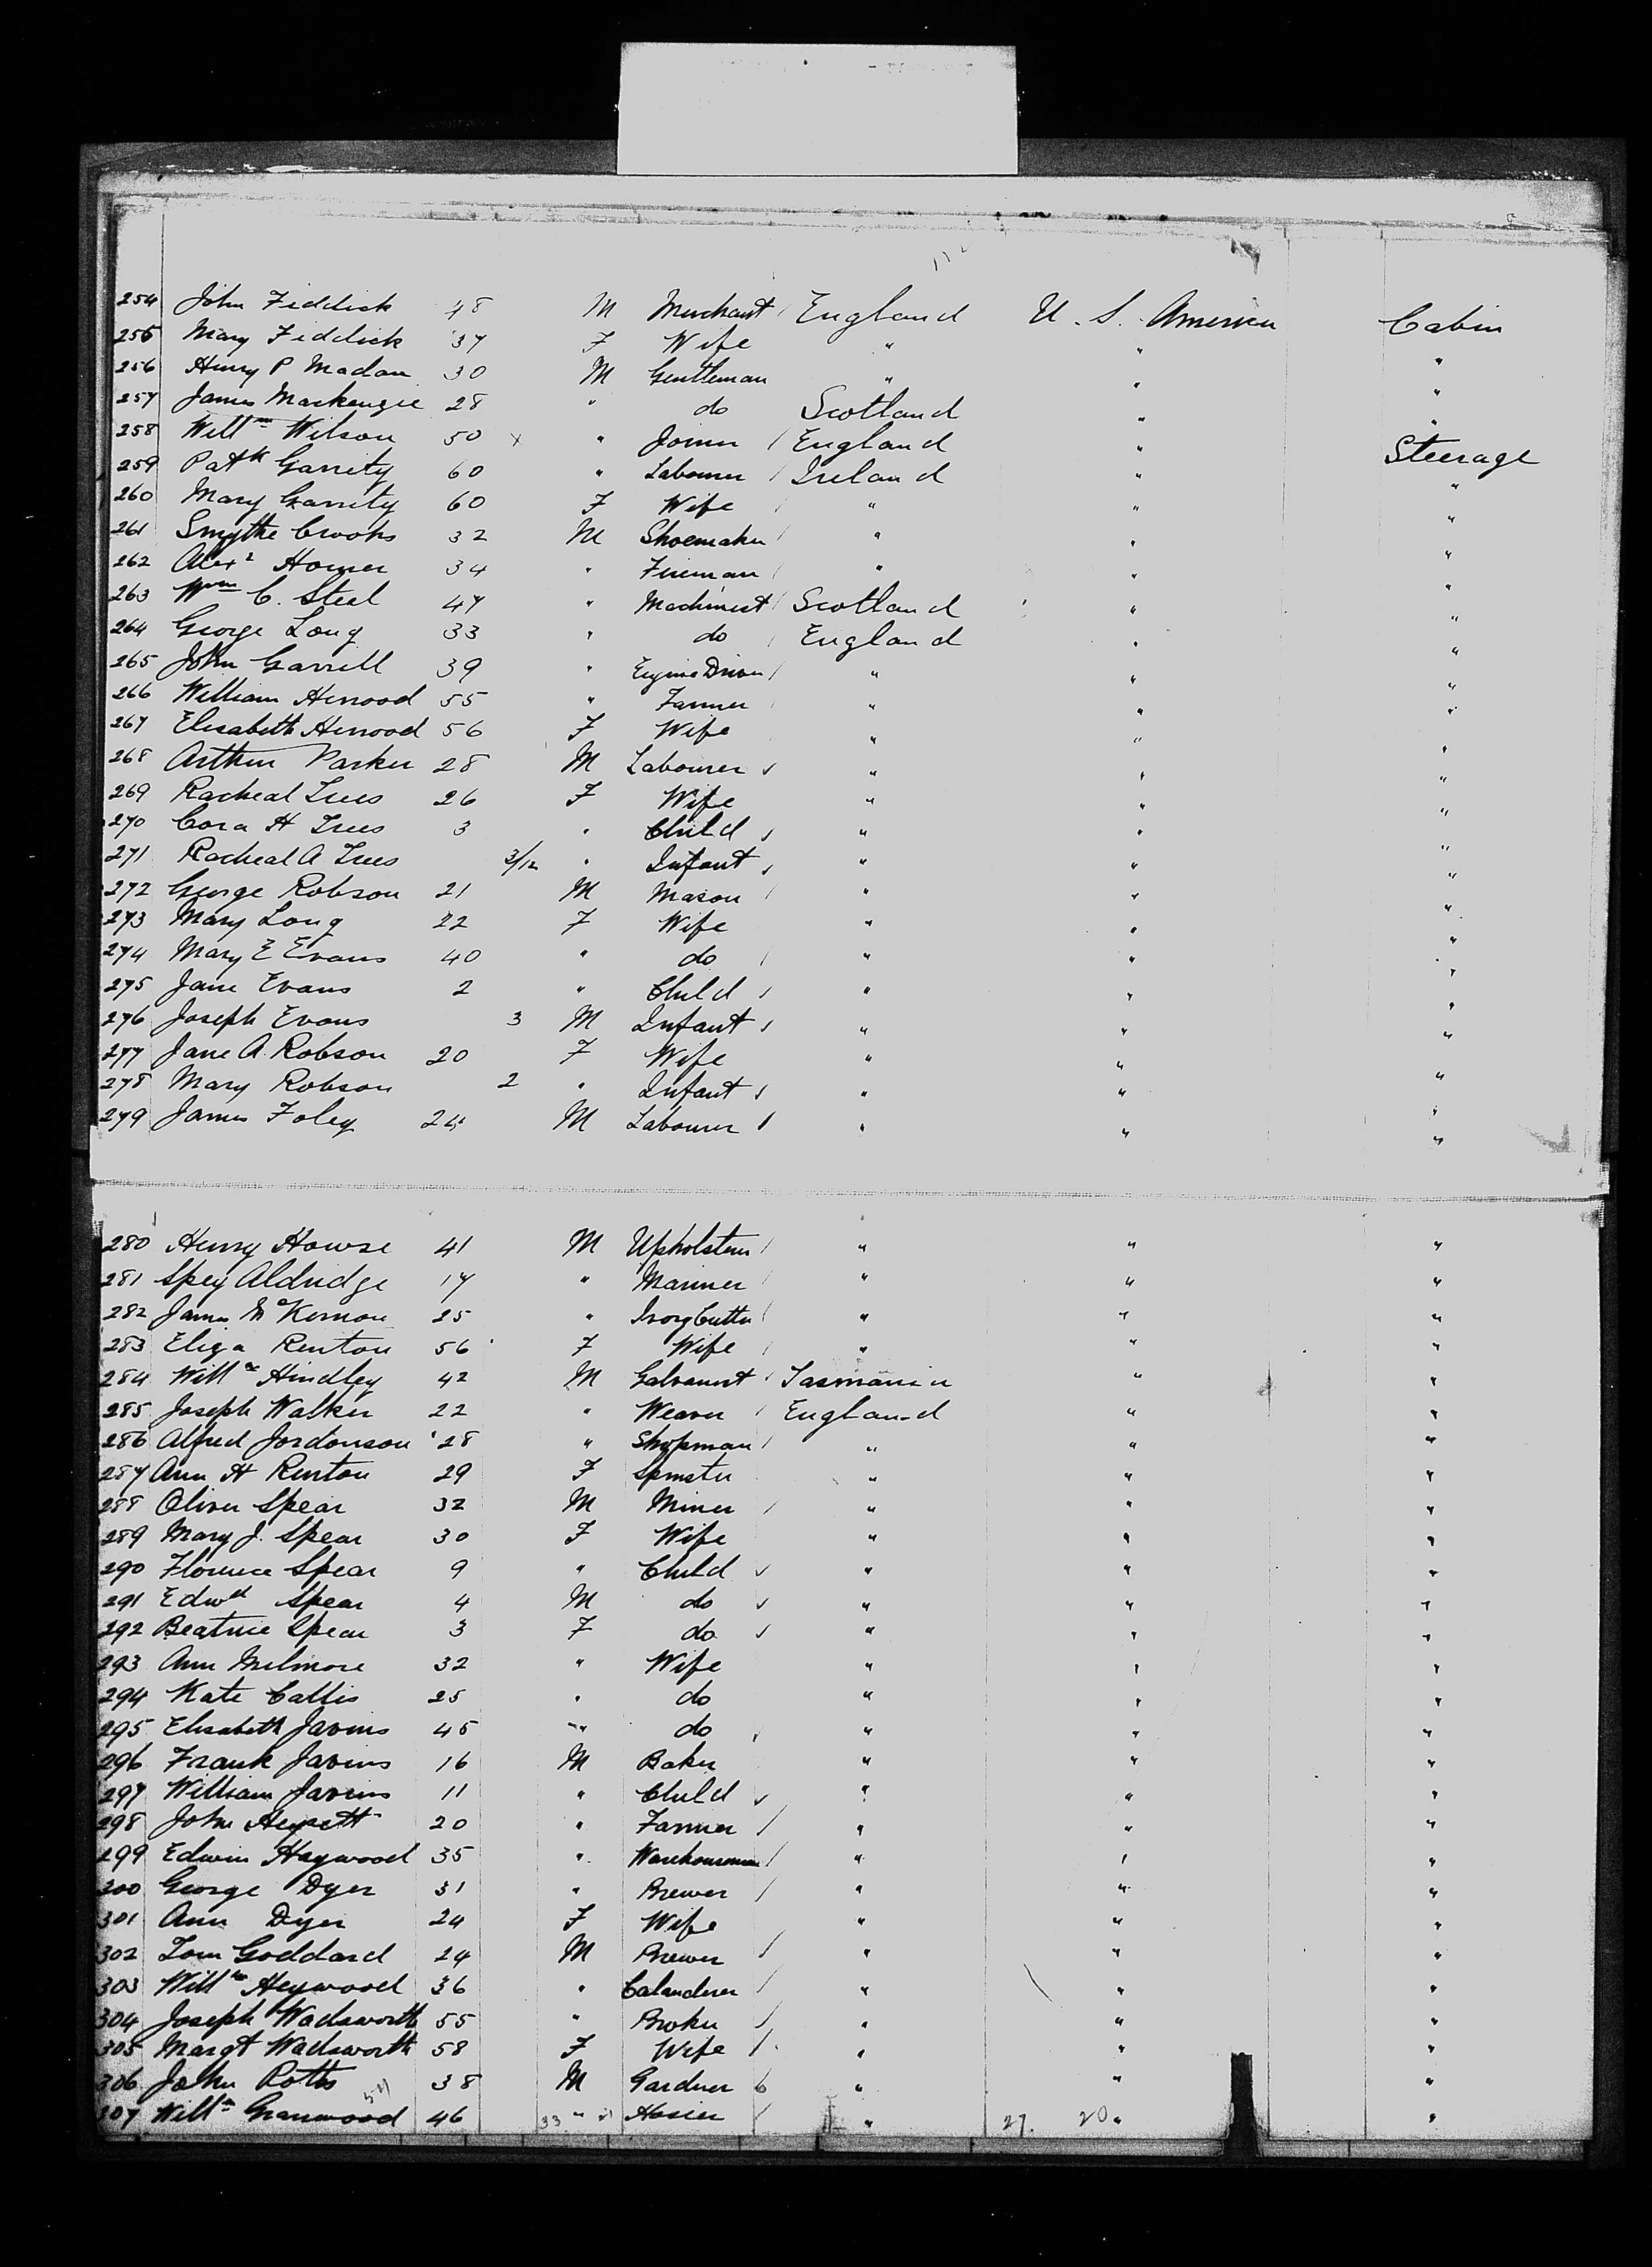 254 John Fiddick 48 M Merchant England U. S. America Cabin
255 Mary Fiddick 37 F Wife " " "
256 Henry P Madan 30 M Gentleman " " "
257 James Mackenzie 28 " do Scotland " "
258 Willm Wilson 50 x " Joiner England " Steerage
259 Patk Garrity 60 " Labourer Ireland " "
260 Mary Garrity 60 F Wife " " "
261 Smythe Crooks 32 M Shoemaker " " "
262 Alexr Homer 34 " Fireman " " "
263 Wm C. Steel 47 " Machinist Scotland " "
264 George Long 33 " do England " "
265 John Garrell 39 " Engine Driver " " "
266 William Henwood 55 " Farmer " " "
267 Elisabeth Henwood 56 F Wife " " "
268 Arthur Parker 28 M Labourer " " "
269 Racheal Trees 26 F Wife " " "
270 Cora H Trees 3 " Child " " "
271 Racheal A Trees 3/12 " Infant " " "
272 George Robson 21 M Mason " " "
273 Mary Long 22 F Wife " " "
274 Mary E Evans 40 " do " " "
275 Jane Evans 2 " Child " " "
276 Joseph Evans 3 M Infant " " "
277 Jane A. Robson 20 F Wife " " "
278 Mary Robson 2 " Infant " " "
279 James Foley 24 M Labourer " " "
280 Henry Howse 41 M Upholsterer " " "
281 Spey Aldridge 17 " Mariner " " "
282 James McKernon 25 " Ivory Cutter " " "
283 Eliza Renton 56 F Wife " " "
284 Willm Hindley 42 M Galvanist Tasmania " "
285 Joseph Walker 22 " Weaver England " "
286 Alfred Jordonson 28 " Shopman " " "
287 Ann H Renton 29 F Spinster " " "
288 Oliver Spear 32 M Miner " " "
289 Mary J. Spear 30 F Wife " " "
290 Florence Spear 9 " Child " " "
291 Edwd Spear 4 M do " " "
292 Beatrice Spear 3 F do " " "
293 Ann Milmore 32 " Wife " " "
294 Kate Callis 25 " do " " "
295 Elisabeth Javins 45 " do " " "
296 Frank Javins 16 M Baker " " "
297 William Javins 11 " Child " " "
298 John 20 " Farmer " " "
299 Edwin Haywood 35 " Warehouseman " " "
300 George Dyer 31 " Brewer " " "
301 Ann Dyer 24 F Wife " " "
302 Tom Goddard 24 M Brewer " " "
303 Willm Heywood 36 " Calanderer " " "
304 Joseph Wadsworth 55 " Broker " " "
305 Margt Wadsworth 58 F Wife " " "
306 John Potts 38 M Gardner " " "
307 Willm Granwood 46 33 " Hosier " 27. 20 " "